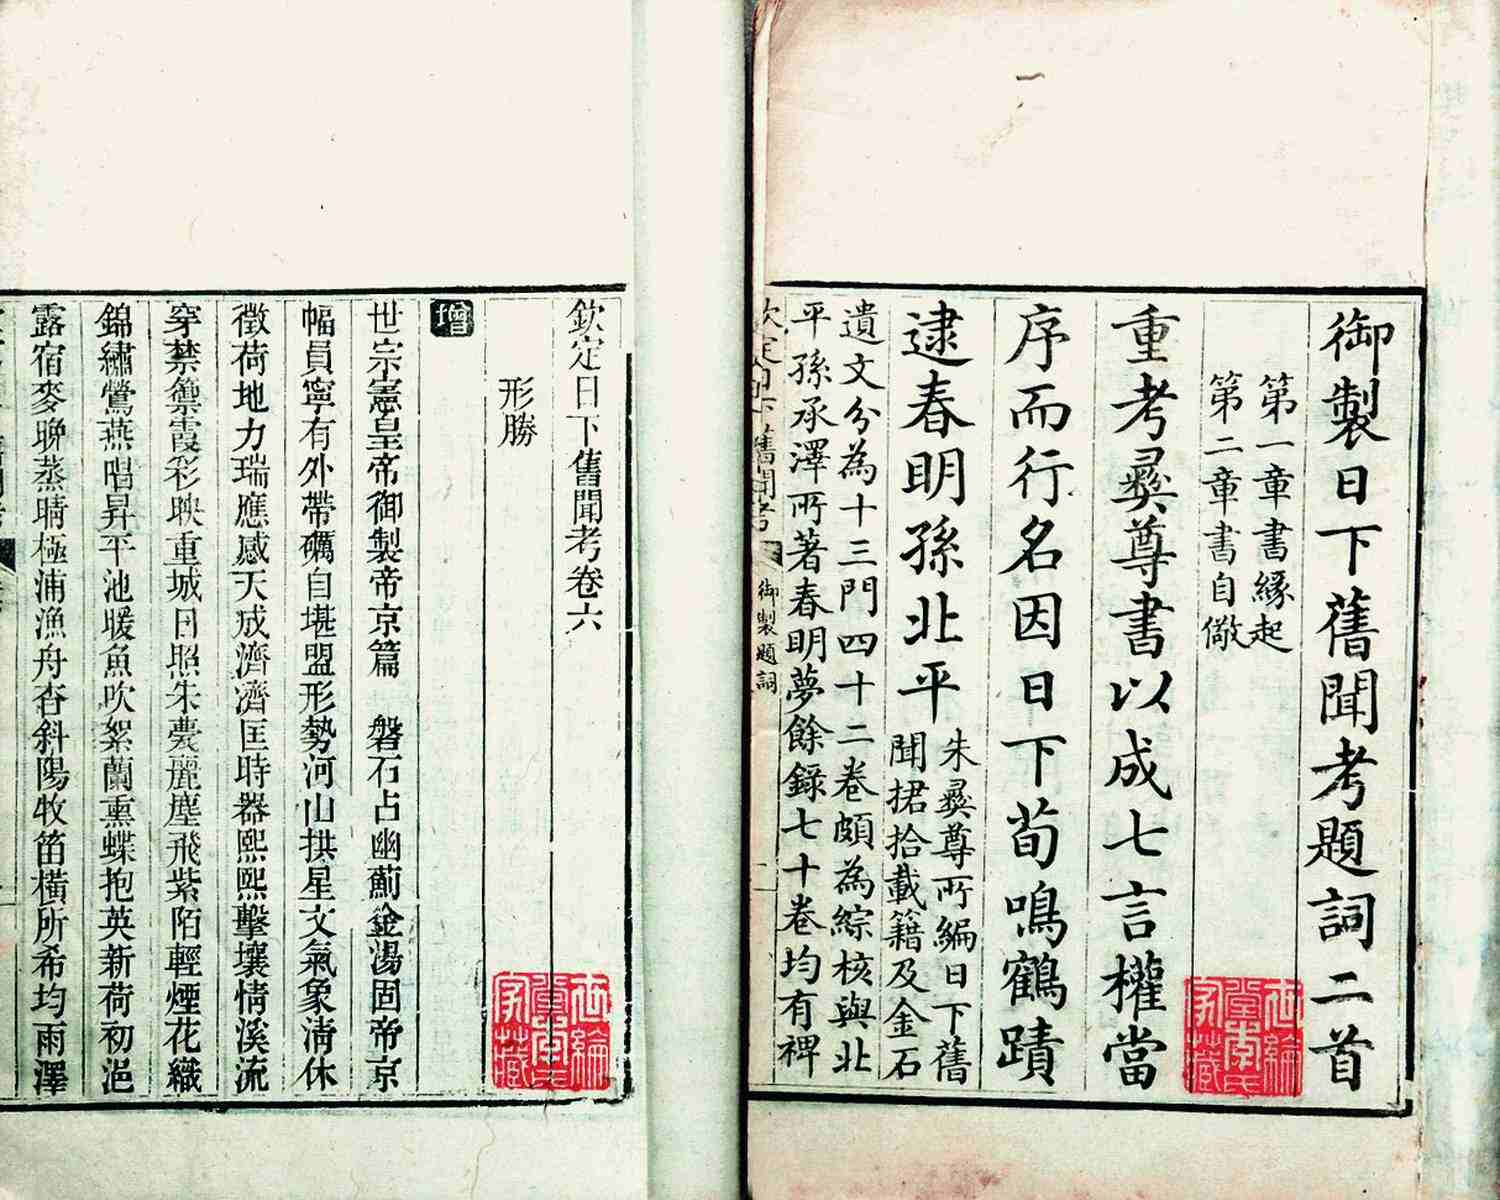 御製日下舊聞考題詞二首
第一章書緣起
第二章書自儆
重考彝尊書以成七言權當
序而行名因日下荀鳴鶴蹟
逮春明孫北平
朱彝尊所編日下舊
聞捃拾載籍及金石
遺文分為十三門四十二卷頗為綜核與北
平孫承澤所著春明夢餘錄七十卷均有裨
御製題詞
欽定日下舊聞考卷六
形勝
增
世宗憲皇帝御製帝京篇 磐石占幽薊金湯固帝京
幅員寧有外帶礪自堪盟形勢河山拱星文氣象淸休
徵荷地力瑞應感天成濟濟匡時器熙熙擊壤情溪流
穿禁籞霞彩映重城日照朱甍麗塵飛紫陌輕煙花織
錦繡鶯燕唱昇平池暖魚吹絮蘭熏蝶抱英新荷初浥
露宿麥晚蒸晴極浦漁舟杳斜陽牧笛橫所希均雨澤